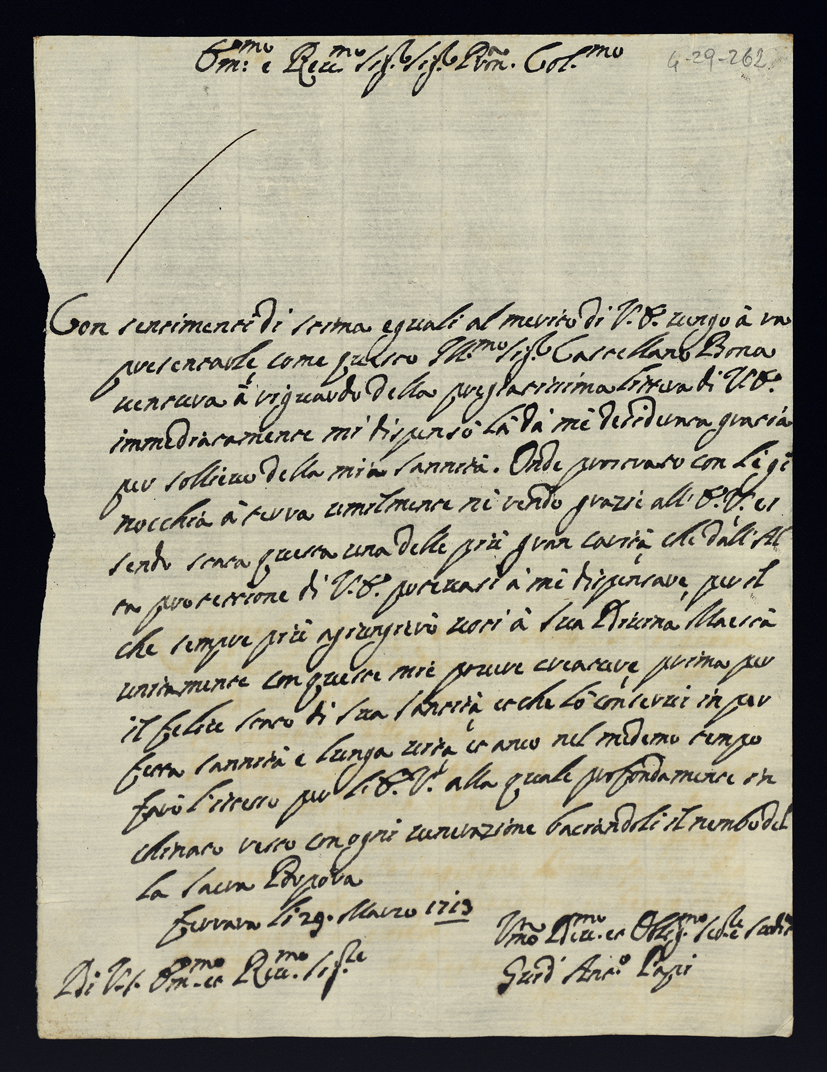 Em:mo e Reu:mo Sig.r Sig.r Pron. Col.mo
4-29-262
Con sentimenti di stima eguali al merito di V.E. uengo à ra
presentarle, come questo Ill.mo Sig.r Castellano Bona
uentura à riguardo della pregiatissima lettera di V.E.
immediatamente mi dispensò la da me desiderata gratia
per sollieuo della mia sannità. Onde prostrato con le gi
nocchia à terra umilmente ni rendo grazie all'E.V. es
sendo stata questa una delle più gran carità che dall'Al
ta protectione di V.E. poteuasi à me dispensare, per il
che sempre più agiungerò uoci à Sua Diuina Maestà
unitamente con queste mie pouere creature, prima per
il felice stato di Sua Santità, et che lo conserui in per
fetta sannità e lunga uita, et anco nel medemo tempo
farò l'istesso per l'E.V. alla quale profondamente in
chinato resto con ogni uenerazione baciandoli il nembo del
la sacra Porpora
Ferrara li 29. Marzo 1713
Di V.S. Em.et Reu.mo Sig.re
Vmo Deu.et Oblig.mo Ser.e
Guid' Ant.o Papi